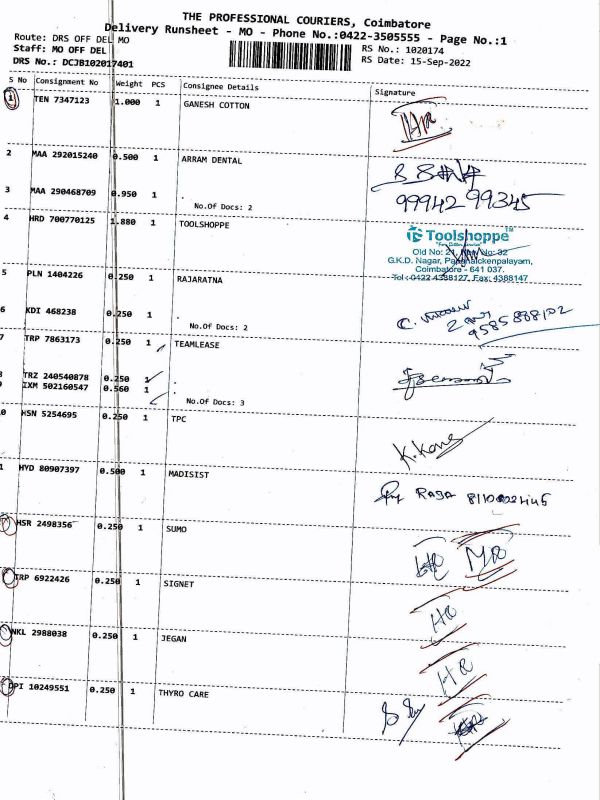 THE PROFESSIONAL COURIERS, Coimbatore
Delivery Runsheet - MO - Phone No.:0422-3505555 - Page No.:1
Route: DRS OFF DEL MO
RS No.: 1020174
Staff: MO OFF DEL
RS Date: 15-Sep-2022
DRS No.: DCJB102017401
S No Consignment No Weight PCS Consignee Details Signature
1 TEN 7347123 1.000 1 GANESH COTTON
HR
2 MAA 292015240 0.500 1 ARRAM DENTAL
3 MAA 290468709 0.950 1 .
No.Of Docs: 2
99942 99345
4 HRD 700770125 1.880 1 TOOLSHOPPE
Toolshoppe
Old No: 32
G.K.D. Nagar, Pappanaickenpalayam,
Coimbatore - 641 037.
Tel : 0422 4388127, Fax: 4388147
5 PLN 1404226 0.250 1 RAJARATNA
6 KDI 468238 0.250 1 .
No.Of Docs: 2
9585888102
7 TRP 7863173 0.250 1 TEAMLEASE
8 TRZ 240540878 0.250 1 .
9 IXM 502160547 0.560 1 .
No.Of Docs: 3
0 HSN 5254695 0.250 1 TPC
1 HYD 80907397 0.500 1 MADISIST
RAJA
HSR 2498356 0.250 1 SUMO
HR
TRP 6922426 0.250 1 SIGNET
HR
NKL 2988038 0.250 1 JEGAN
HR
DPI 10249551 0.250 1 THYRO CARE